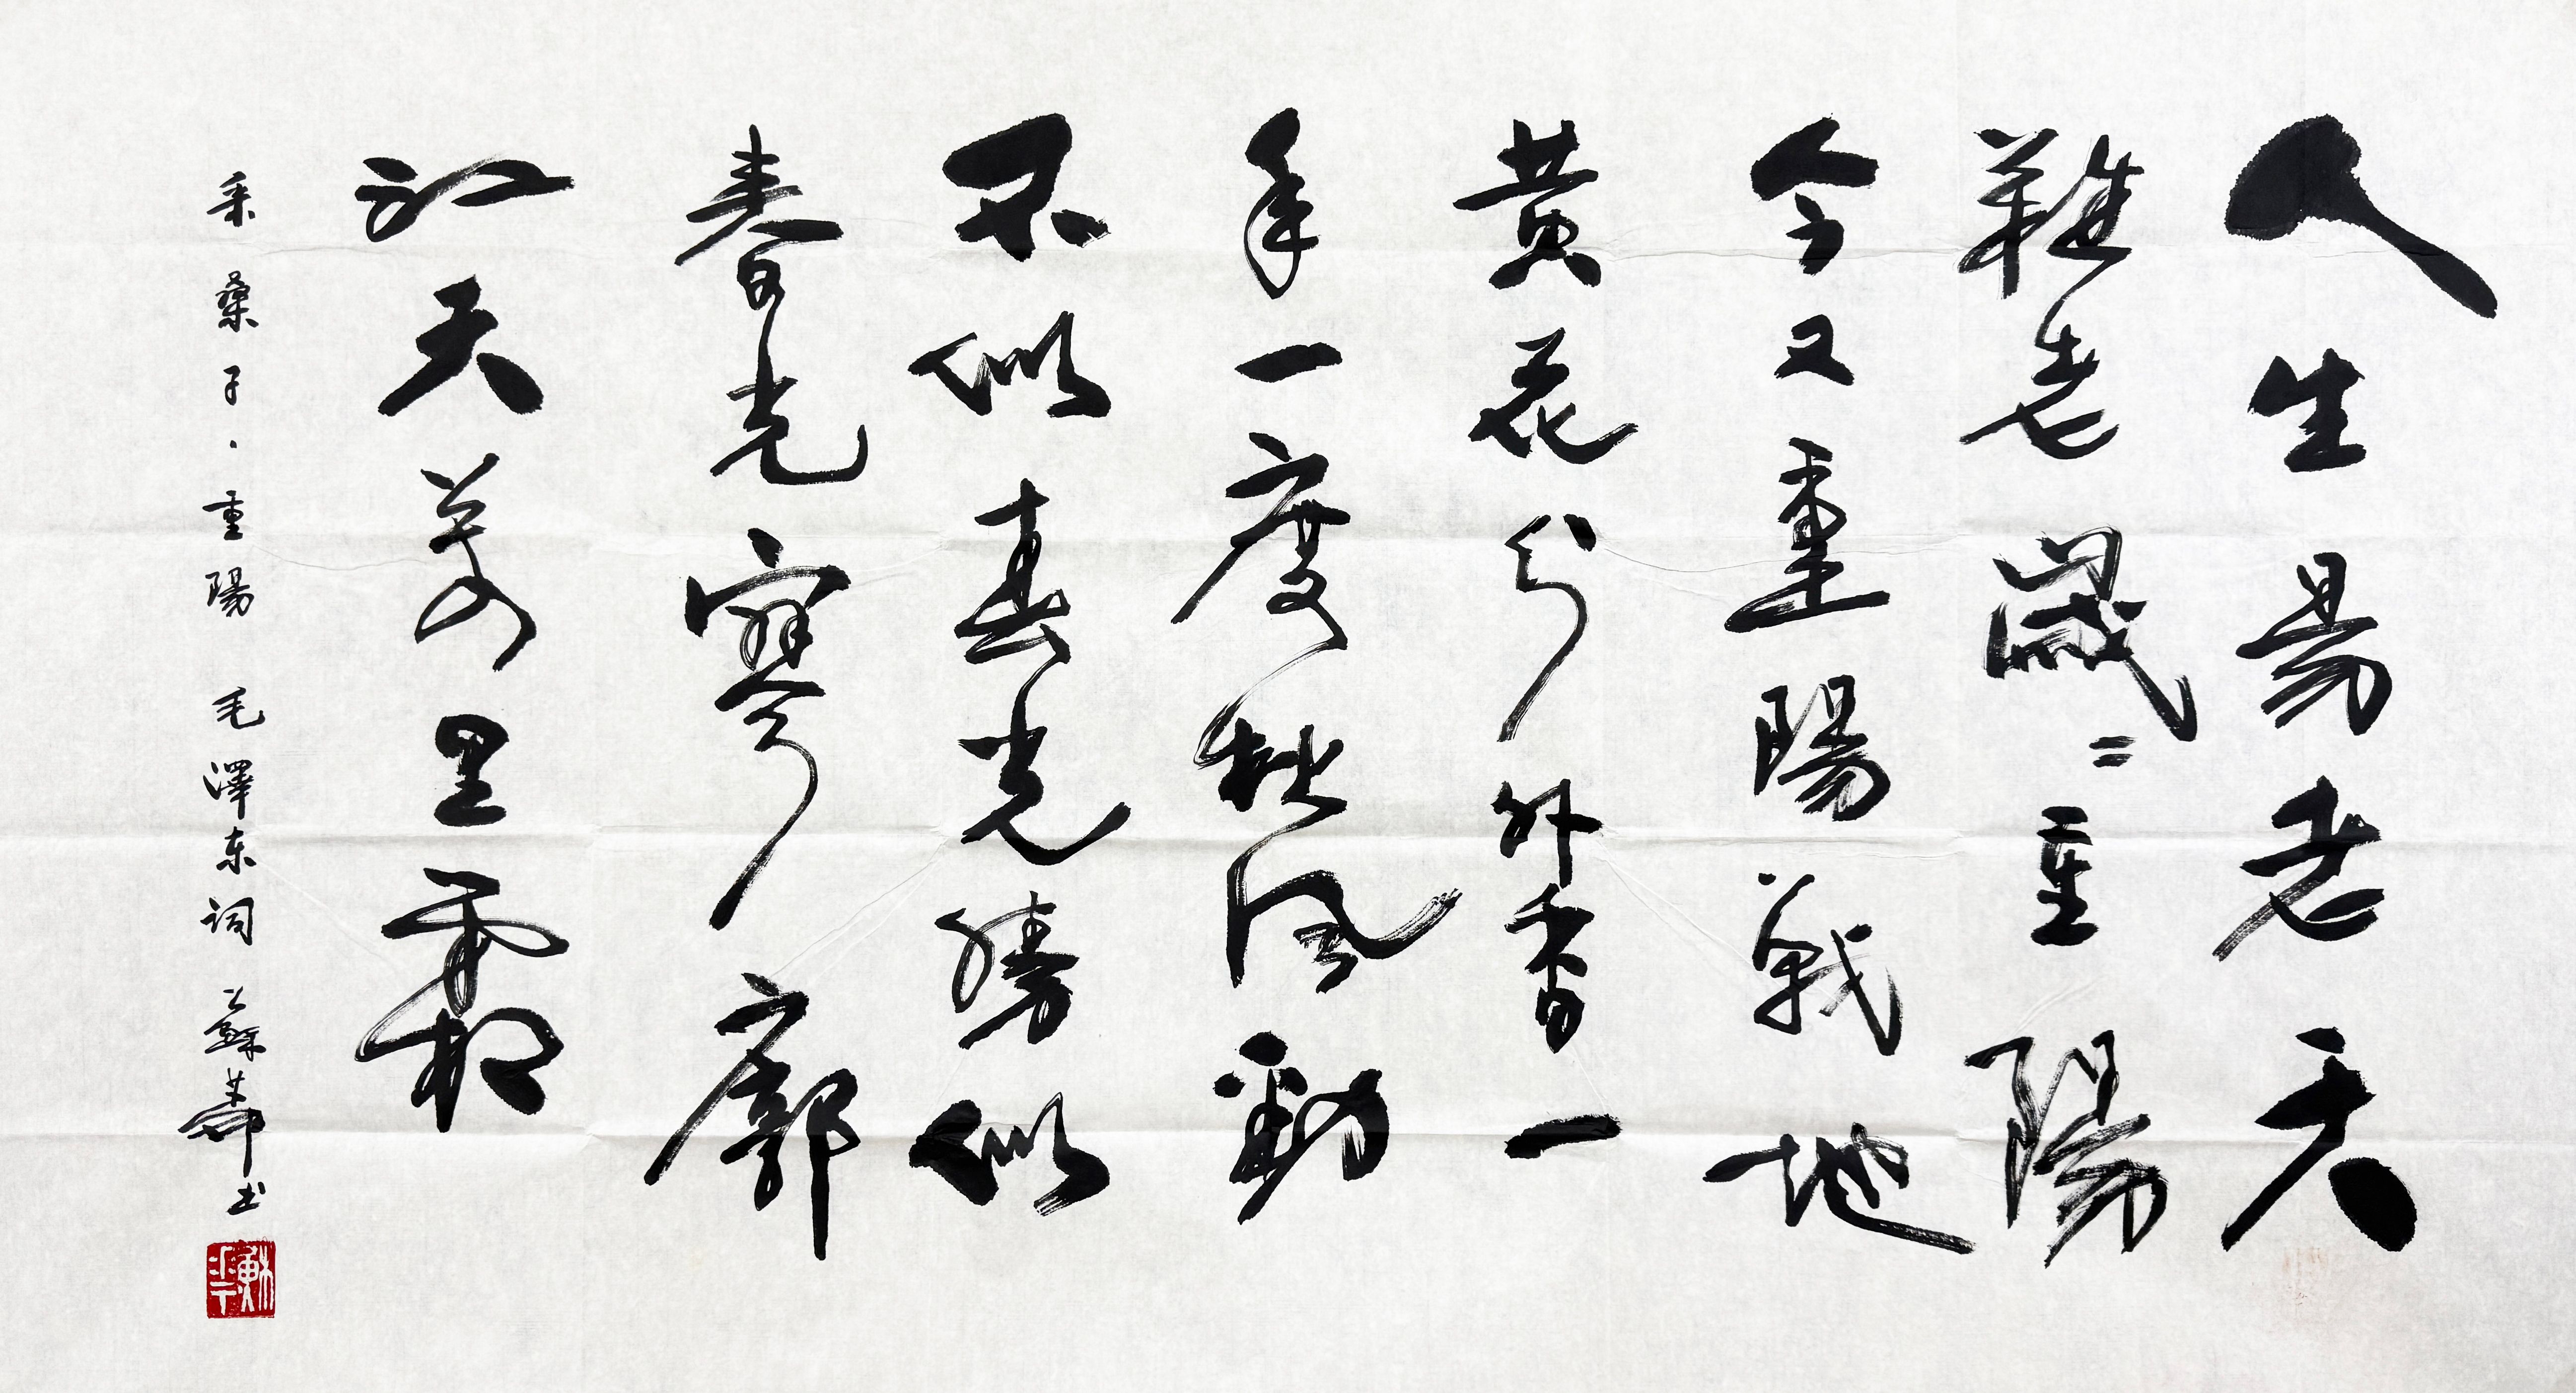 人生易老天
難老歲〻重陽
今又重陽戰地
黄花分外香一
年一度秋風勁
不似春光勝似
春光寥廓
江天萬里霜
采桑子·重陽 毛澤东詞 蘇 书